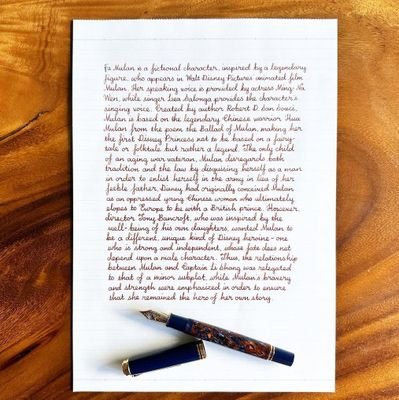 Fa Mulan is a fictional character, inspired by a legendary
figure, who appears in Walt Disney Pictures' animated film
Mulan. Her speaking voice is provided by actress Ming-Na
Wen, while singer Lea Salonga provides the character's
singing voice. Created by author Robert D. San Souci,
Mulan is based on the legendary Chinese warrior Hua
Mulan from the poem the Ballad of Mulan, making her
the first Disney Princess not to be based on a fairy-
tale or folktale but rather a legend. The only child
of an aging war veteran, Mulan disregards both
tradition and the law by disguising herself as a man
in order to enlist herself in the army in lieu of her
feeble father. Disney had originally conceived Mulan
as an oppressed young Chinese woman who ultimately
elopes to Europe to be with a British prince. However,
director Tony Bancroft, who was inspired by the
well-being of his own daughters, wanted Mulan to
be a different, unique kind of Disney heroine - one
who is strong and independent, whose fate does not
depend upon a male character. Thus, the relationship
between Mulan and Captain Li Shang was relegated
to that of a minor subplot, while Mulan's bravery
and strength were emphasized in order to ensure
that she remained the hero of her own story.